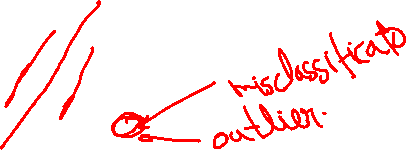 misclassificato
outlier.